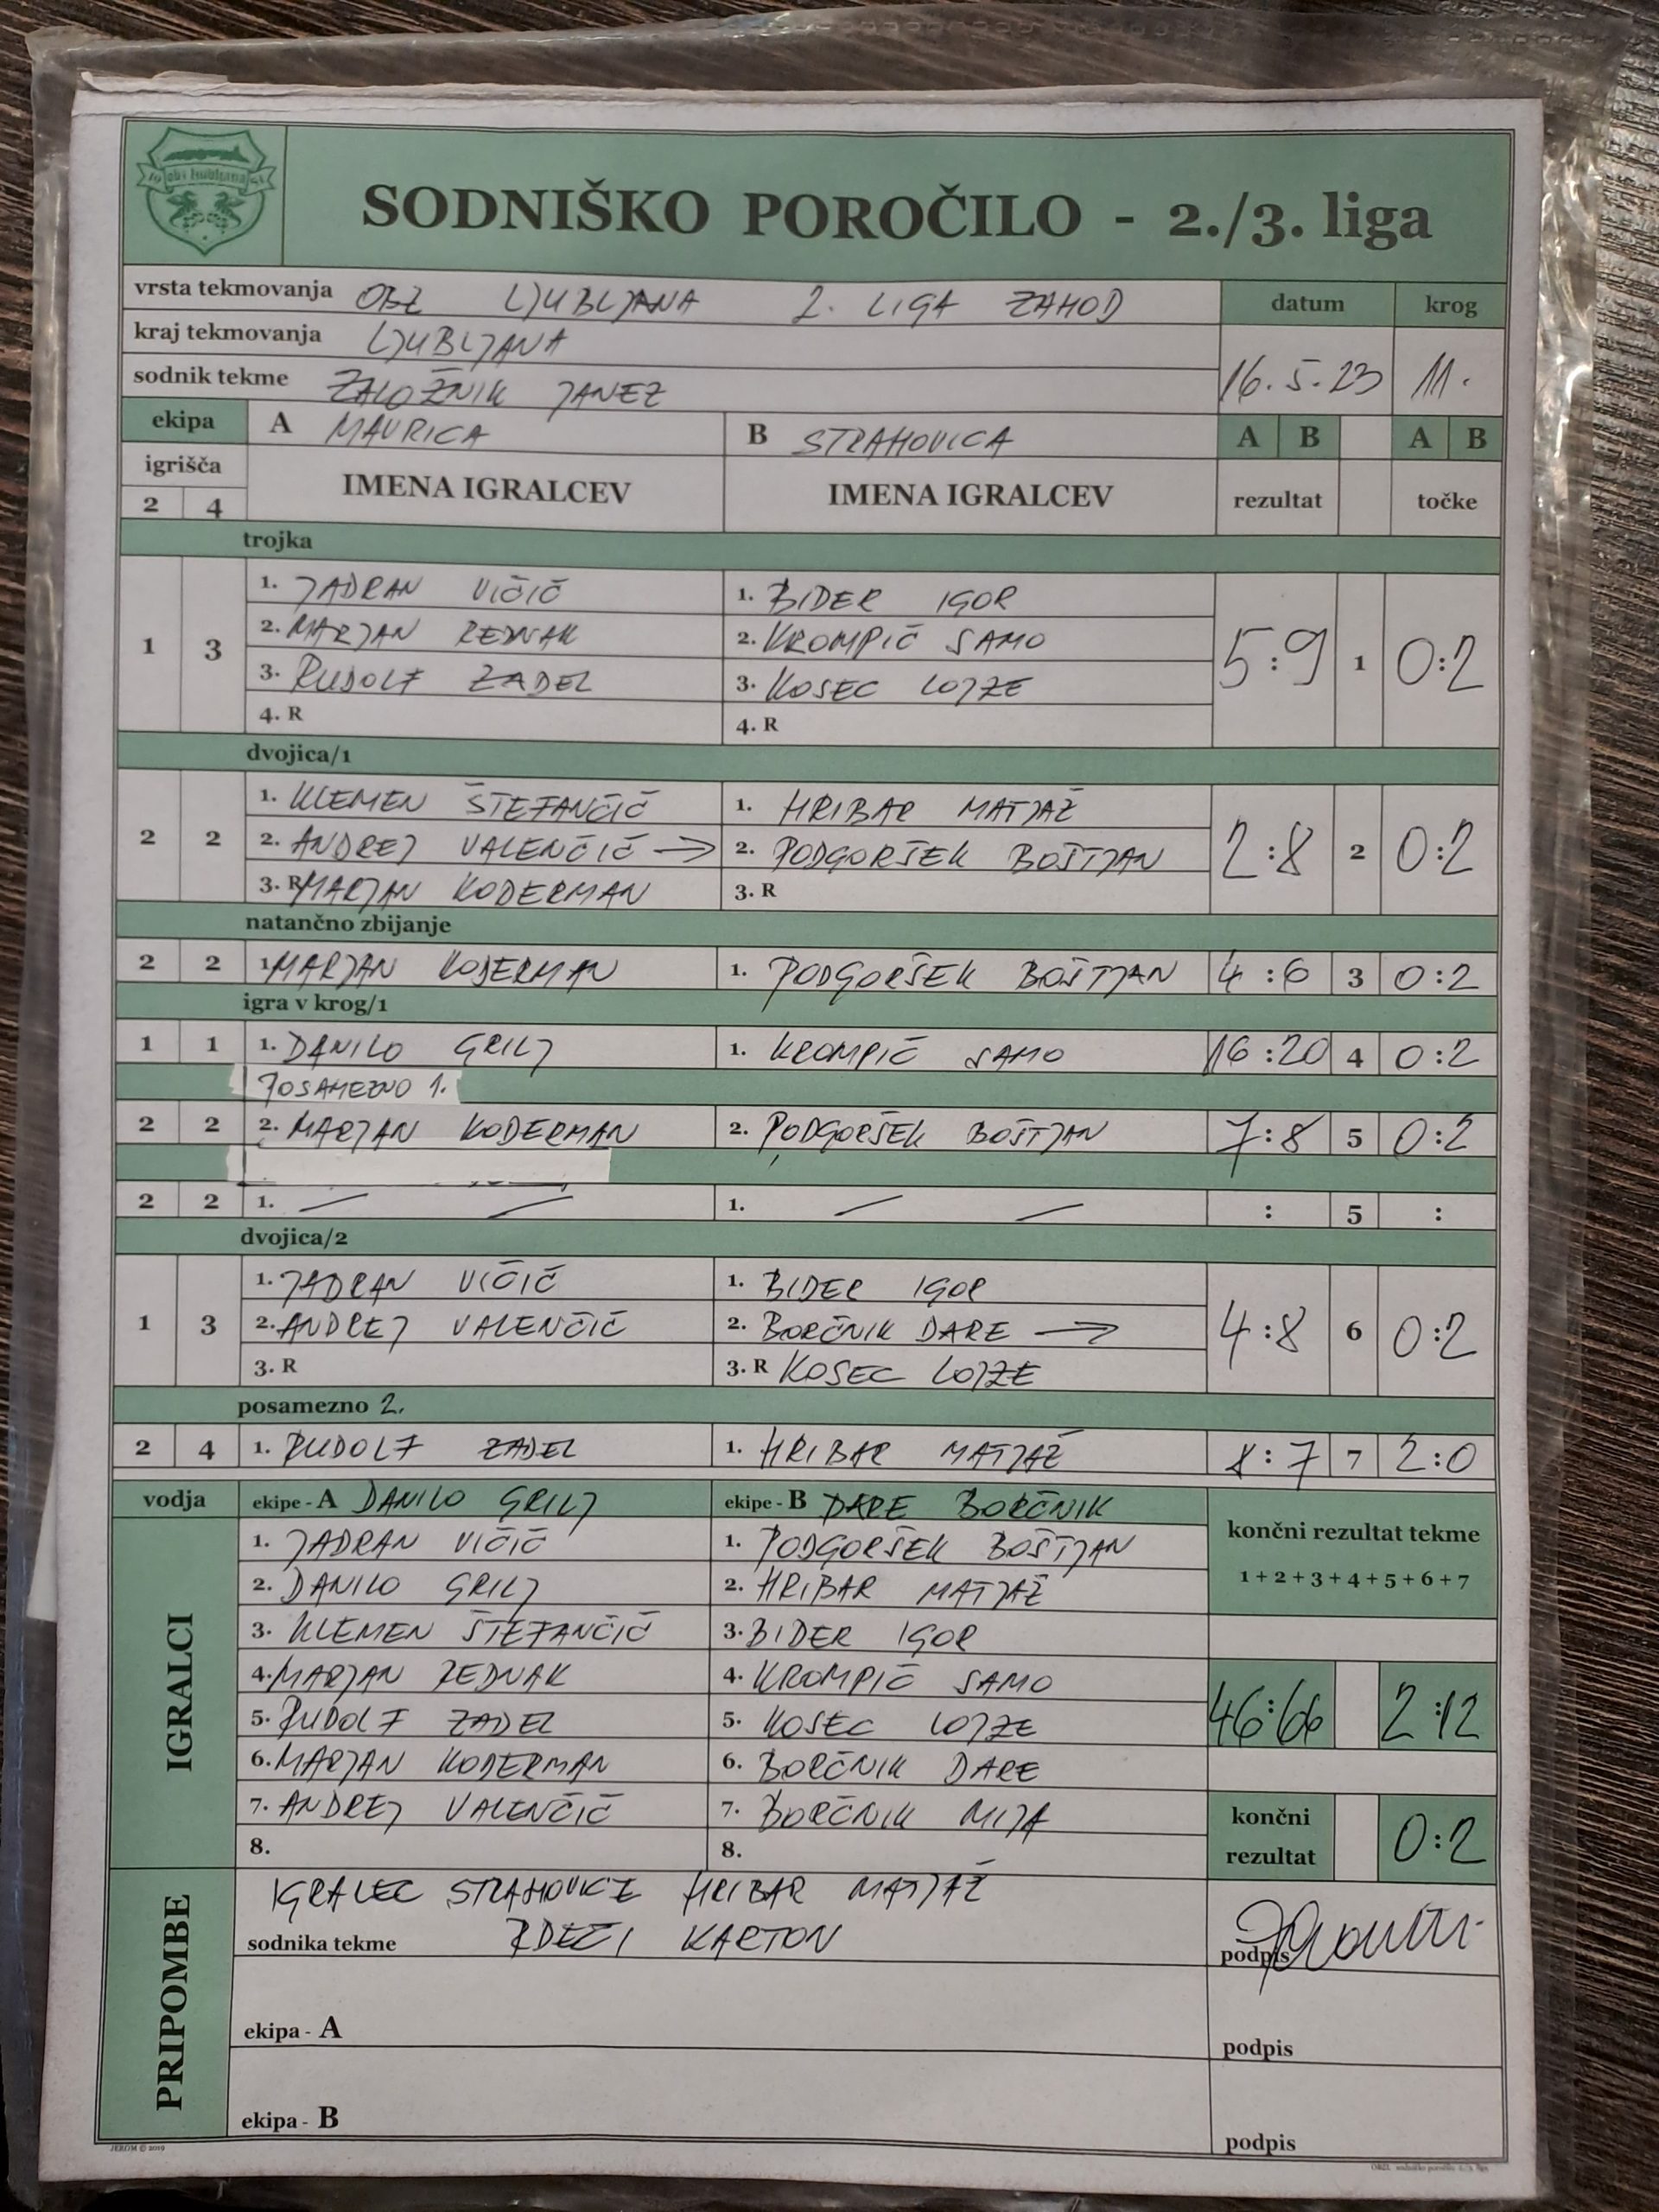 obz ljubljana
SODNIŠKO POROČILO - 2./3. liga
vrsta tekmovanja OBZ LJUBLJANA 2. LIGA ZAHOD datum krog
kraj tekmovanja LJUBLJANA
sodnik tekme ZALOŽNIK JANEZ 16.5.23 11.
ekipa A MAVRICA B STRAHOVICA A B A B
igrišča IMENA IGRALCEV IMENA IGRALCEV rezultat točke
2 4
trojka
1. JADRAN VIČIČ 1. BIDER IGOR
2. MARJAN REDNAK 2. KROMPIČ SAMO
1 3 5:9 1 0:2
3. RUDOLF ZADEL 3. KOSEC LOJZE
4. R 4. R
dvojica/1
1. KLEMEN ŠTEFANČIČ 1. HRIBAR MATJAŽ
2 2 2. ANDREJ VALENČIČ → 2. PODGORŠEK BOŠTJAN 2:8 2 0:2
3. R MARJAN KODERMAN 3. R
natančno zbijanje
2 2 1. MARJAN KODERMAN 1. PODGORŠEK BOŠTJAN 4:6 3 0:2
igra v krog/1
1 1 1. DANILO GRILJ 1. KROMPIČ SAMO 16:20 4 0:2
POSAMEZNO 1.
2 2 2. MARJAN KODERMAN 2. PODGORŠEK BOŠTJAN 7:8 5 0:2
2 2 1. — — 1. — — : 5 :
dvojica/2
1. JADRAN VIČIČ 1. BIDER IGOR
1 3 2. ANDREJ VALENČIČ 2. BORČNIK DARE → 4:8 6 0:2
3. R 3. R KOSEC LOJZE
posamezno 2.
2 4 1. RUDOLF ZADEL 1. HRIBAR MATJAŽ 8:7 7 2:0
vodja ekipe - A DANILO GRILJ ekipe - B DARE BORČNIK
končni rezultat tekme
1 + 2 + 3 + 4 + 5 + 6 + 7
IGRALCI
1. JADRAN VIČIČ 1. PODGORŠEK BOŠTJAN
2. DANILO GRILJ 2. HRIBAR MATJAŽ
3. KLEMEN ŠTEFANČIČ 3. BIDER IGOR
4. MARJAN REDNAK 4. KROMPIČ SAMO
5. RUDOLF ZADEL 5. KOSEC LOJZE 46:66 2:12
6. MARJAN KODERMAN 6. BORČNIK DARE
7. ANDREJ VALENČIČ 7. BORČNIK MIJA
8. 8.
končni rezultat 0:2
PRIPOMBE
IGRALEC STRAHOVICE HRIBAR MATJAŽ
sodnika tekme RDEČI KARTON podpis
ekipa - A podpis
ekipa - B podpis
JEROM © 2019